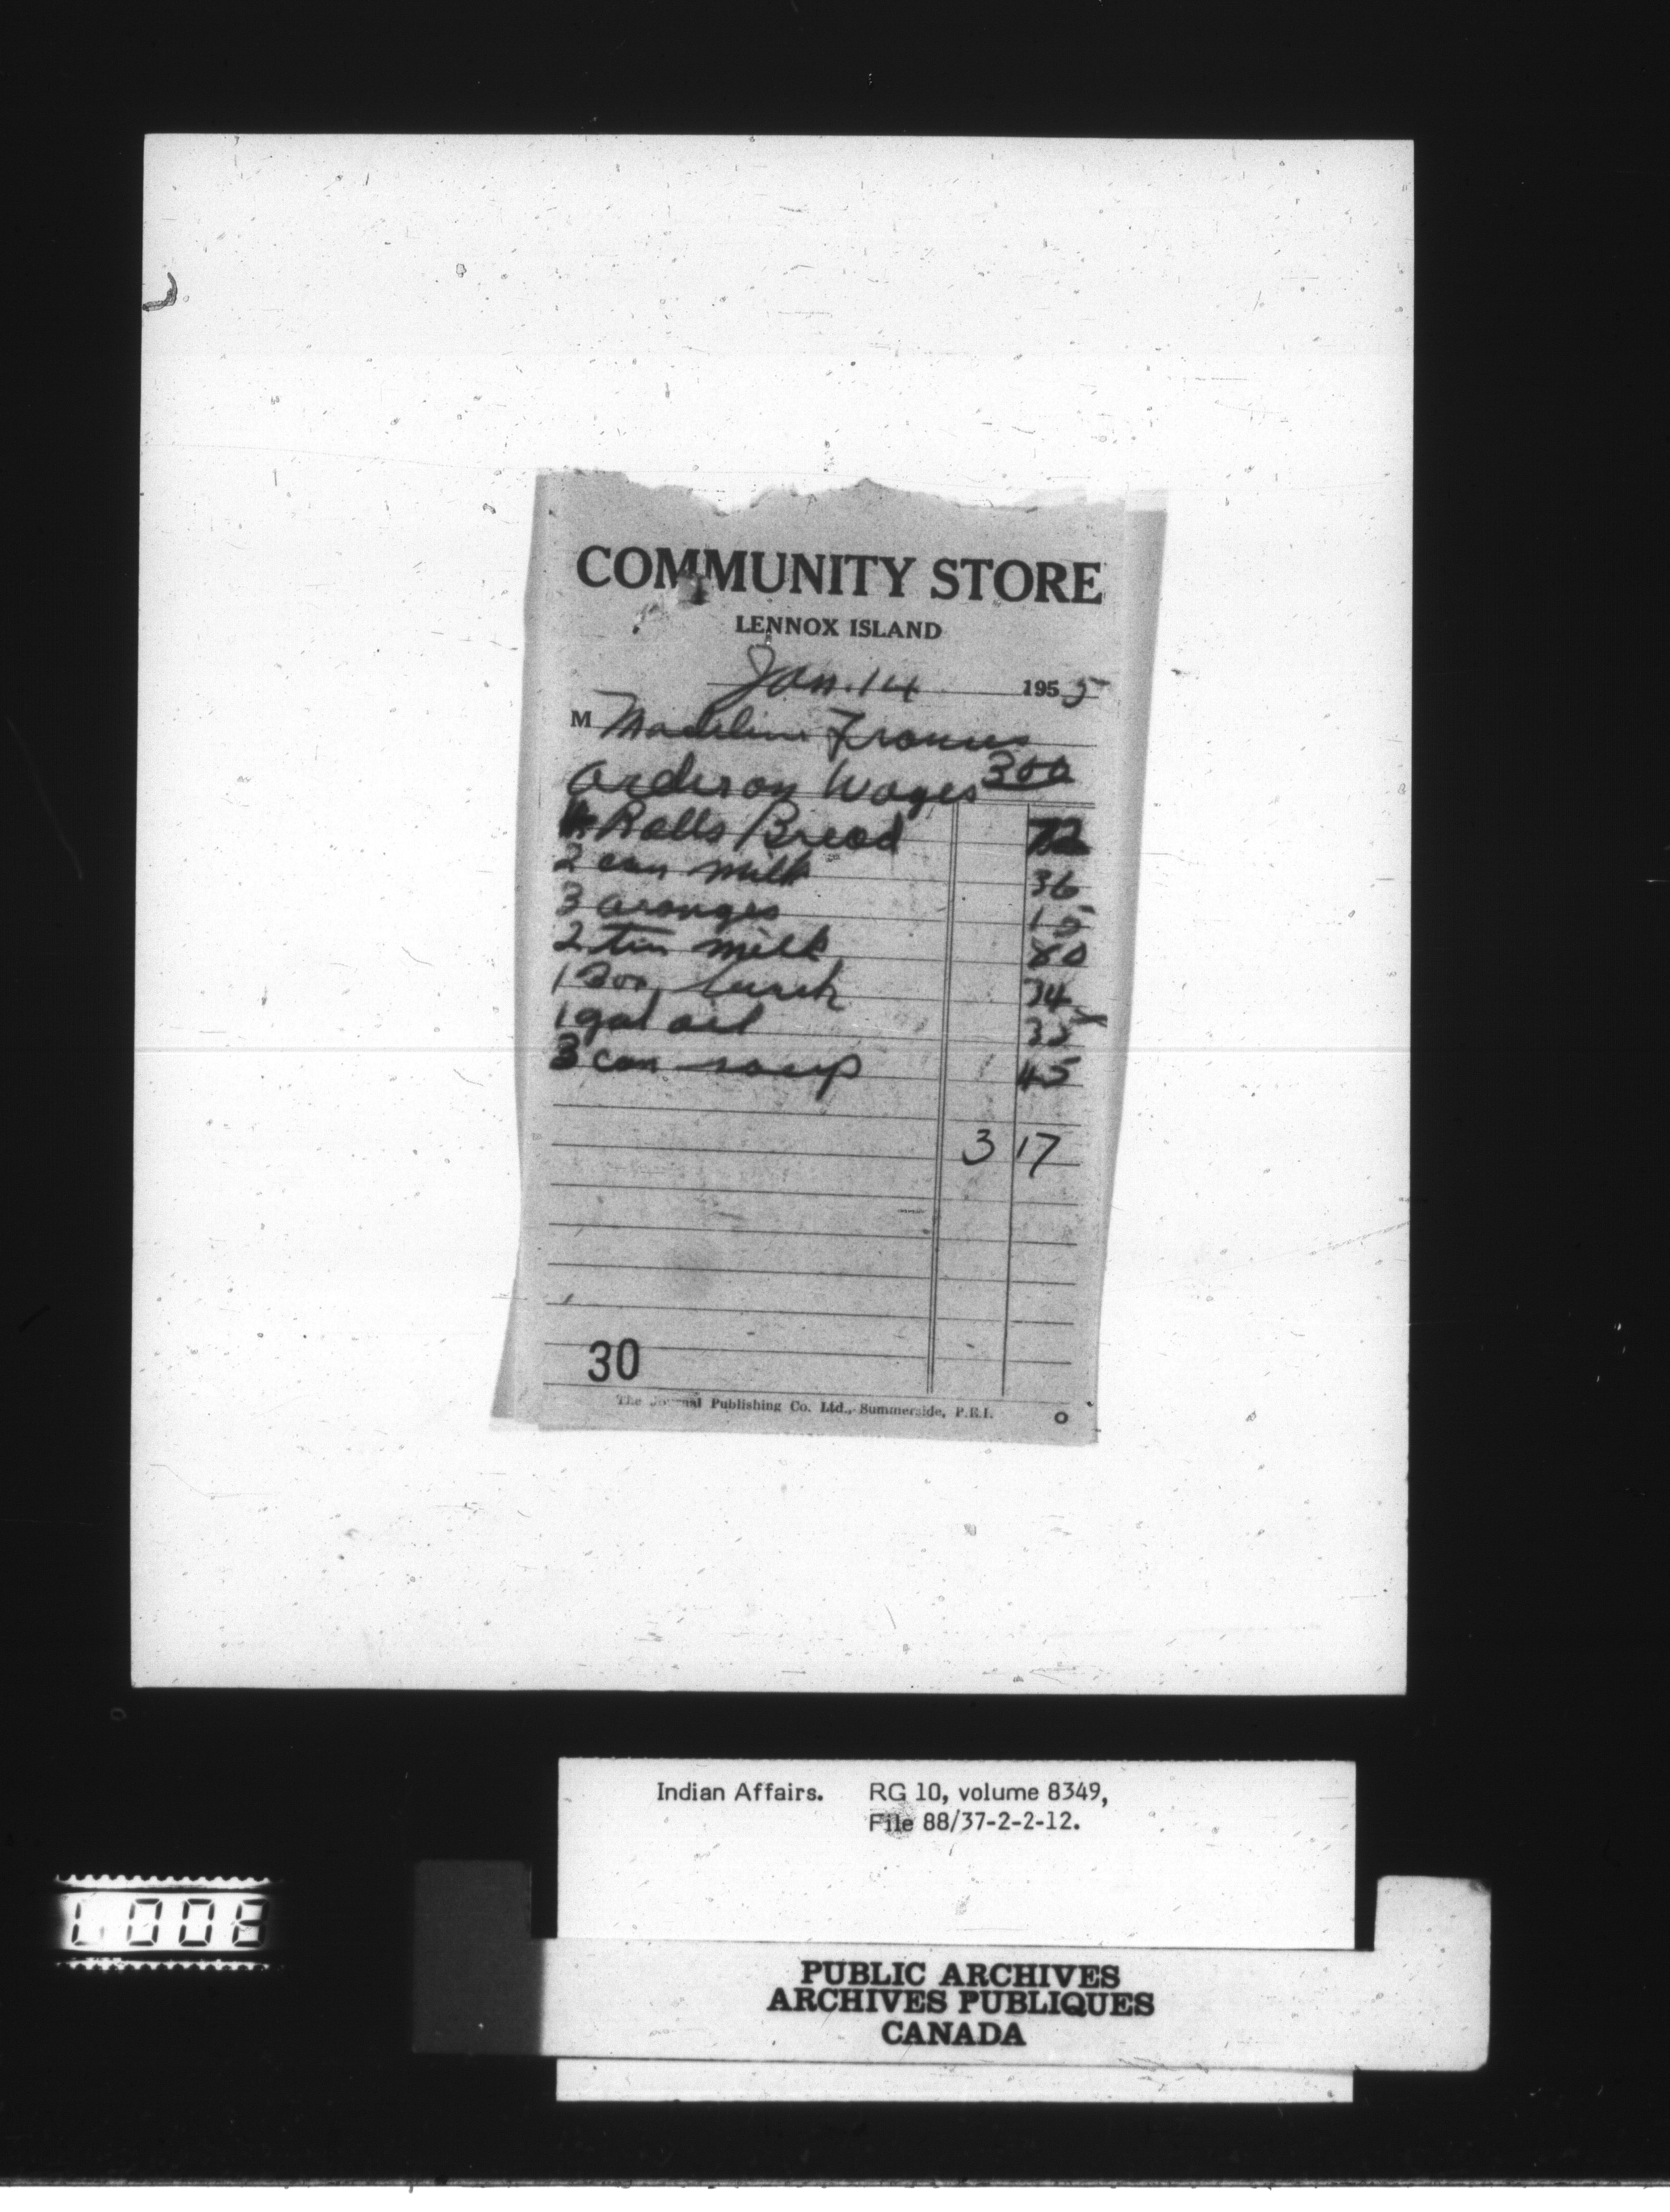 COMMUNITY STORE
LENNOX ISLAND
Jan. 14 1955
M Madeline Francis
Order on Wages 300
4 Rolls Bread 72
2 can milk 36
3 oranges 15
2 tin milk 80
1 lunch 34
1 gal oil 35
3 can soup 45
3 17
30
The Journal Publishing Co. Ltd., Summerside, P.E.I.
Indian Affairs. RG 10, volume 8349,
File 88/37-2-2-12.
PUBLIC ARCHIVES
ARCHIVES PUBLIQUES
CANADA